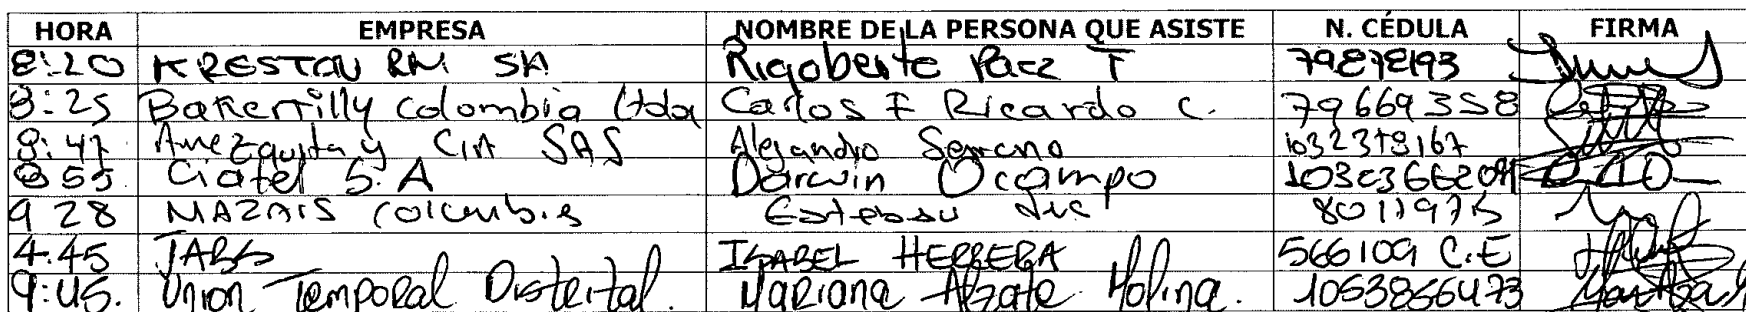 HORA EMPRESA NOMBRE DE LA PERSONA QUE ASISTE N. CÉDULA FIRMA
8:20 KRESTON RM SA Rigoberto Paez T 79878193
8:25 Bakertilly Colombia Ltda Carlos F Ricardo C. 79669358
8:47 Amezquita y CIA SAS Alejandro Serrano 1032378167
8 55 Ciatel S.A Darwin Ocampo
9 28 MAZARS Colombia Esteban
4:45 JABS ISABEL HERRERA 566109 C.E
9:45. Union Temporal Distrital. Mariana Alzate Molina. 1053866473